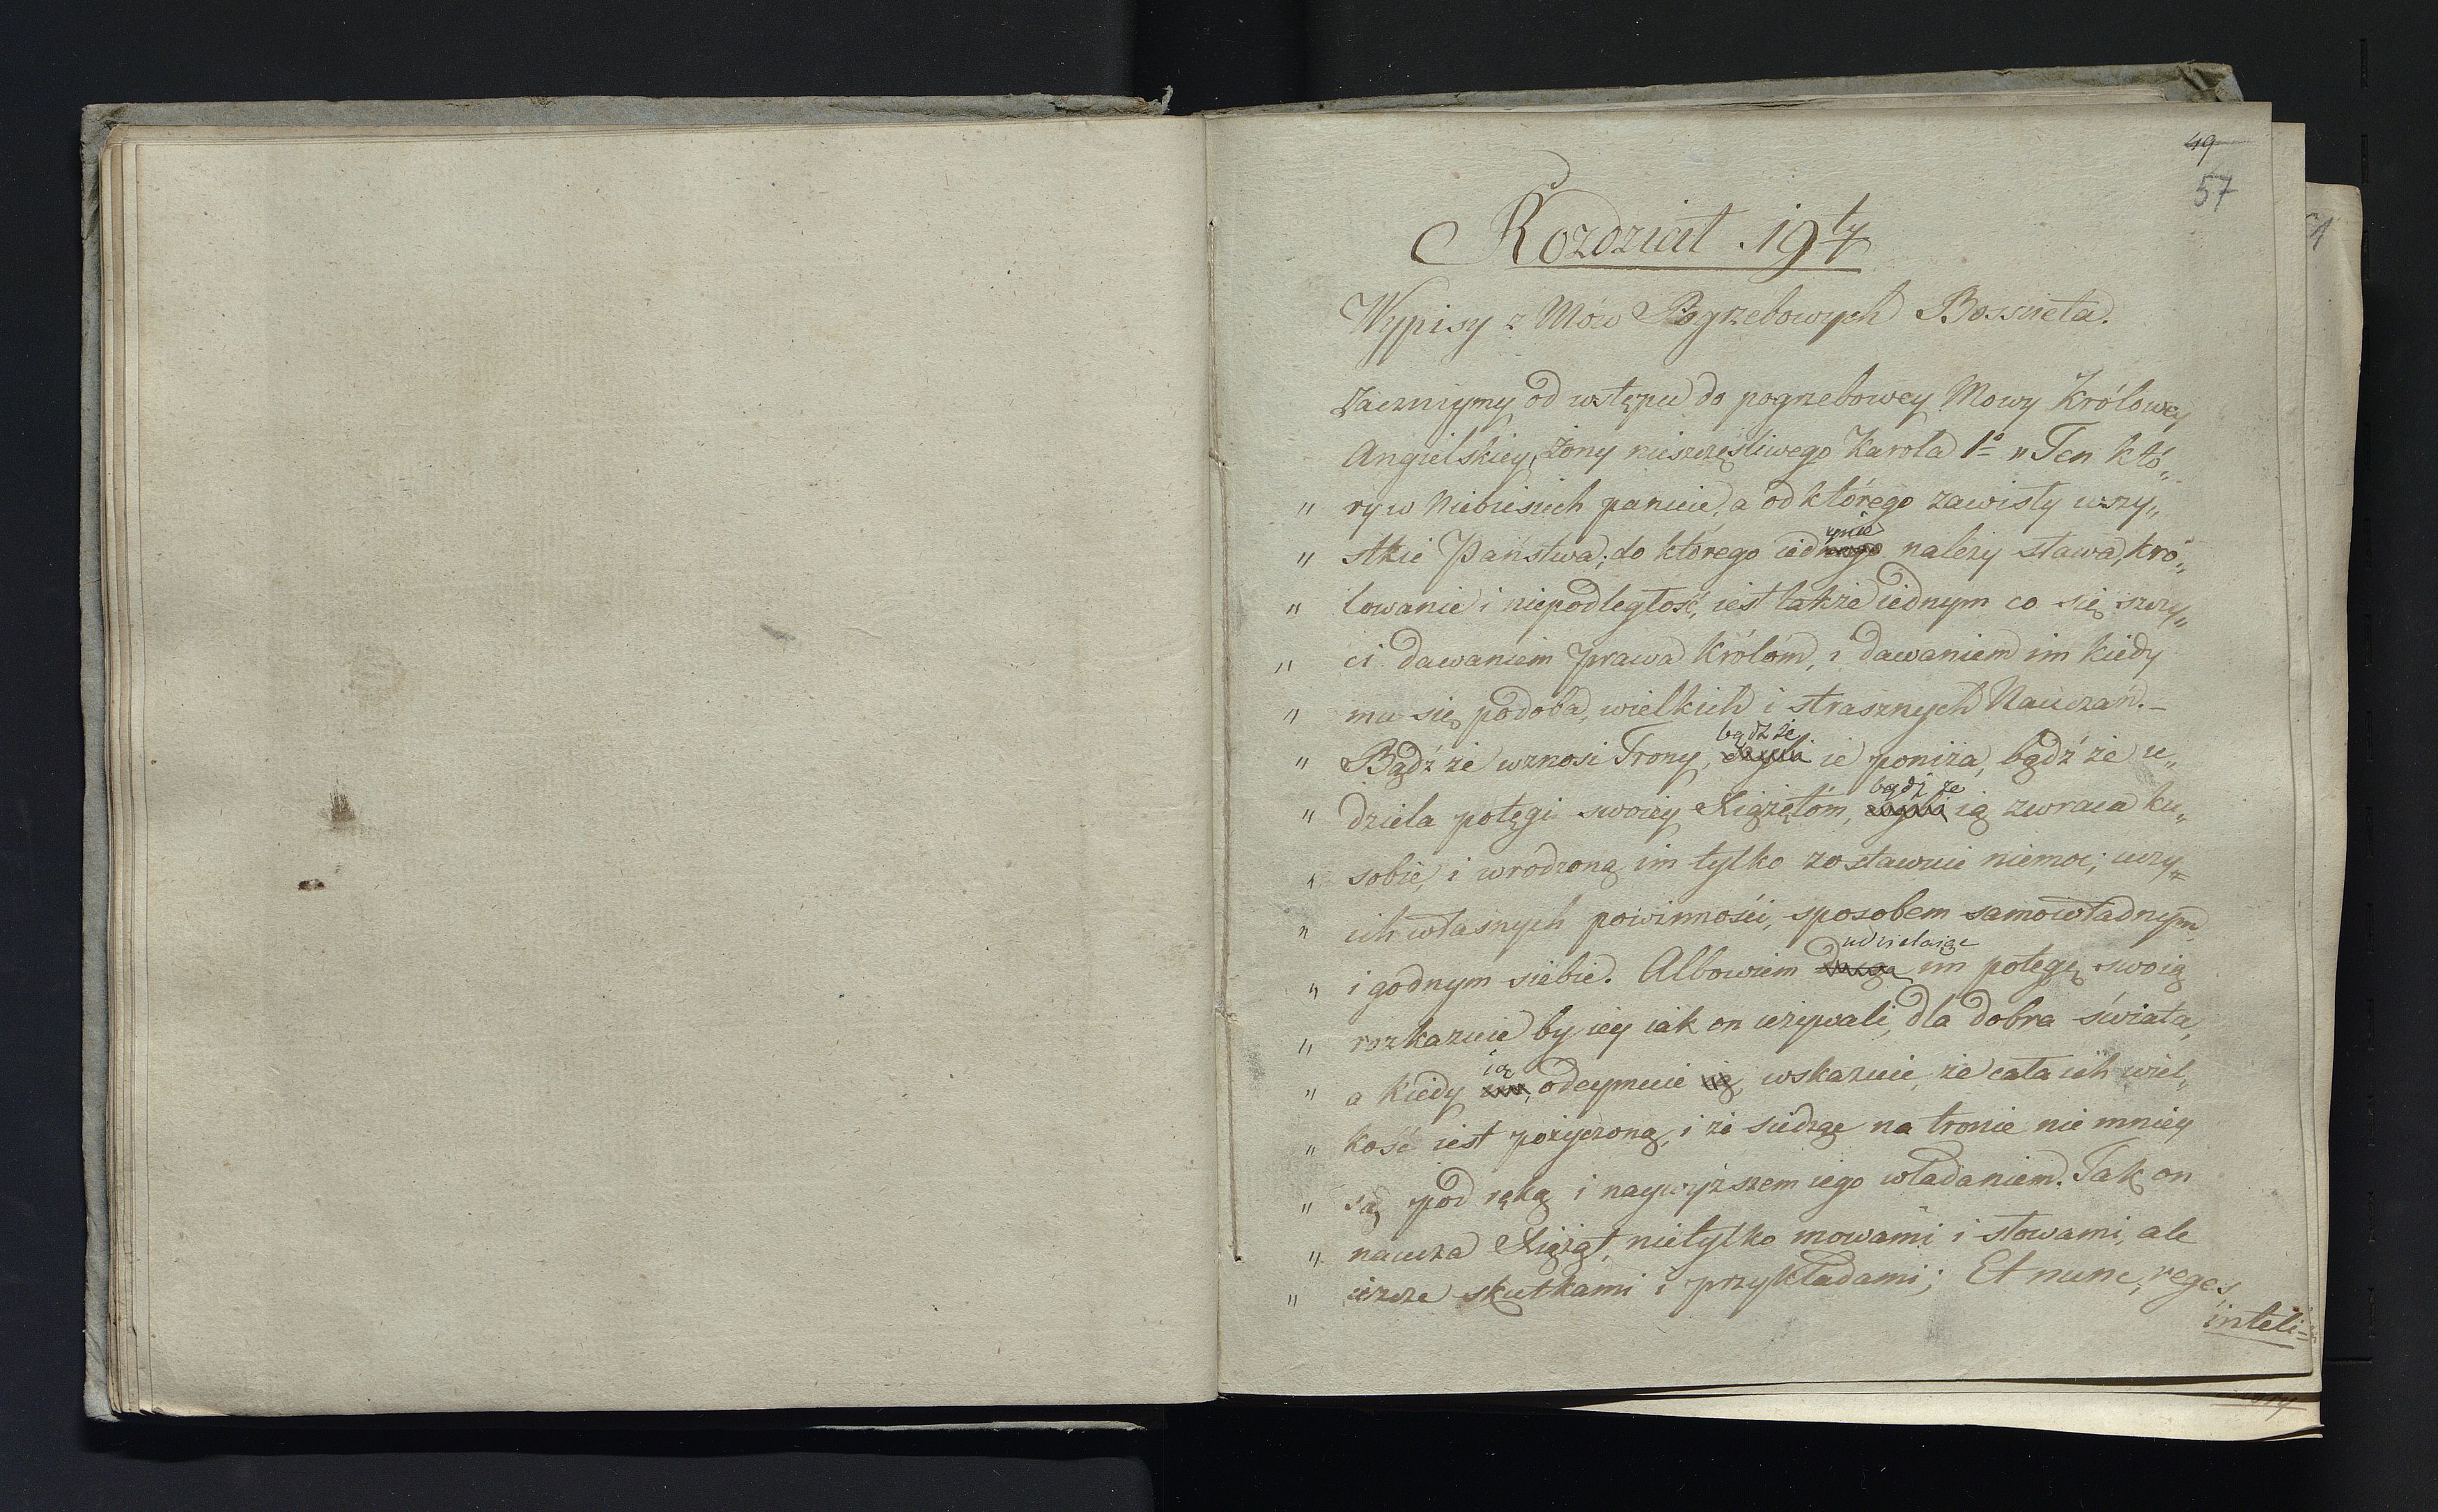 49
57
Rozdział 19ty
Wypisy z Mów Pogrzebowych Bossueta.
Zacznijmy od wstępu do pogrzebowey Mowy Królowey
Angielskiey, żony nieszczęśliwego Karola 1o „Ten któ„
„ ry w Niebiesiech panuie, a od którego zawisły wszy„
ynie
„ stkie Państwa; do którego iednego należy sława, kró„
„ lowanie i niepodległość, iest także iednym co się szczy„
„ ci dawaniem prawa Królóm, i dawaniem im kiedy
„ mu się podoba, wielkich i strasznych Nauczań. –
bądź że
„ Bądź że wznosi Trony, czyli ie poniża, bądź że u„
bądź że
„ dziela potęgi swoiey Xiążętóm, czyli ią zwraca ku„
„ sobie, i wrodzoną im tylko zostawuie niemoc; uczy„
„ ich własnych powinności, sposobem samowładnym,
udzielaiąc
„ i godnym siebie. Albowiem daiąc im potęgę swoią
„ rozkazuie by iey iak on używali, dla dobra świata,
ią
„ a kiedy im odeymuie ią, wskazuie, że cała ich wiel„
„ kość iest pożyczoną, i że siedząc na tronie nie mniey
„ są pod ręką i naywyższem iego władaniem. Tak on
„ naucza Xiążąt, nietylko mowami i słowami, ale
„ ieszcze skutkami i przykładami; Et nunc, reges,
inteli=